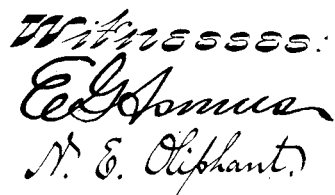 Witnesses:
E G Asmus
N. E. Oliphant.